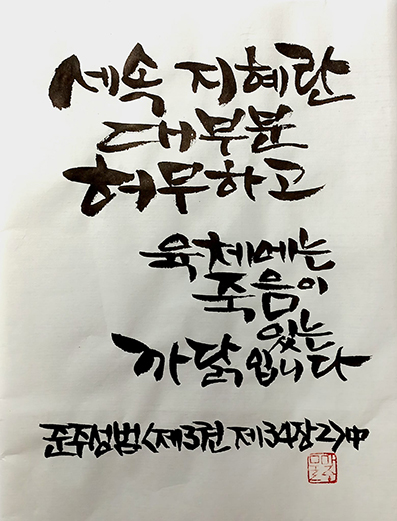 세속 지혜란
대부분
허무하고
육체에는
죽음이
있는
까닭입니다
준주성범<제3권 제34장2>中